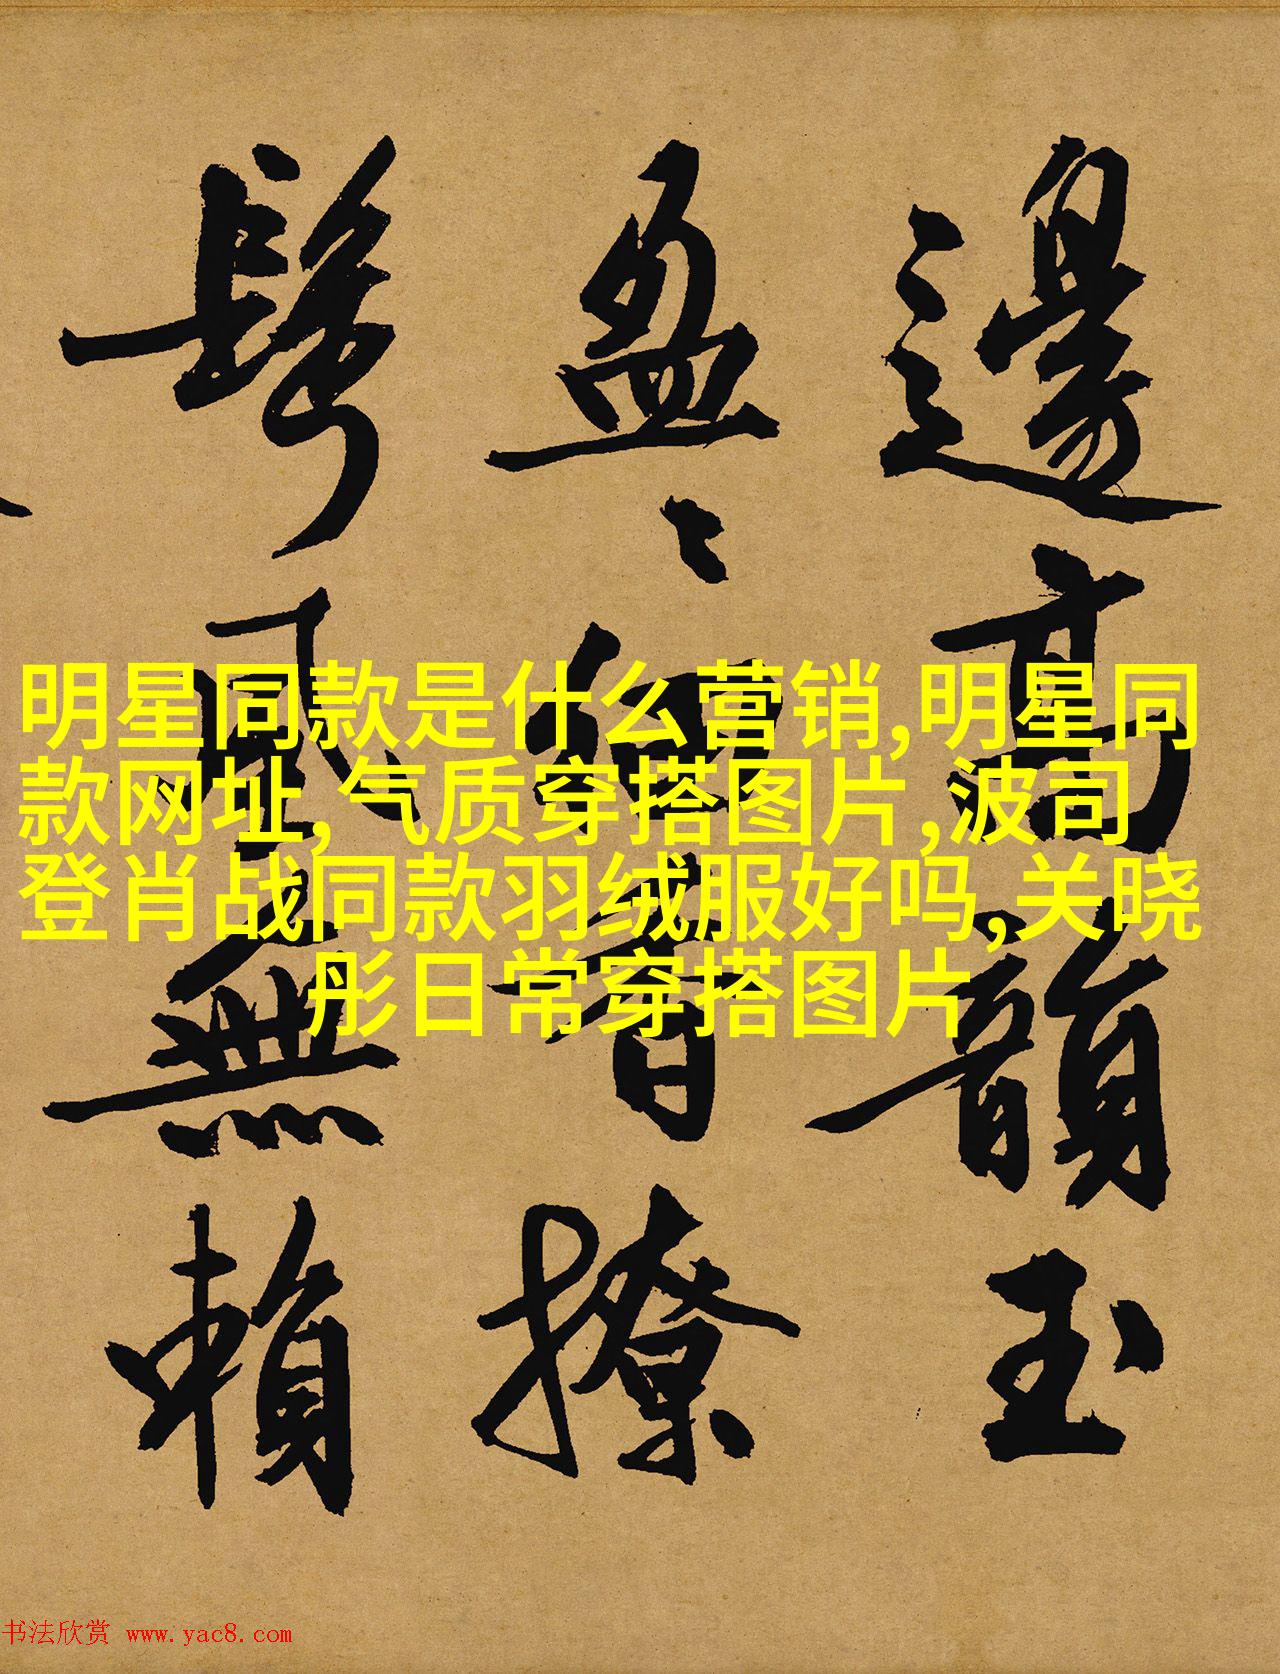 邊高韻玉
盈々細香撩
鬢風無賴
明星同款是什么营销,明星同
款网址,气质穿搭图片,波司
登肖战同款羽绒服好吗,关晓
彤日常穿搭图片
书法欣赏 www.yac8.com